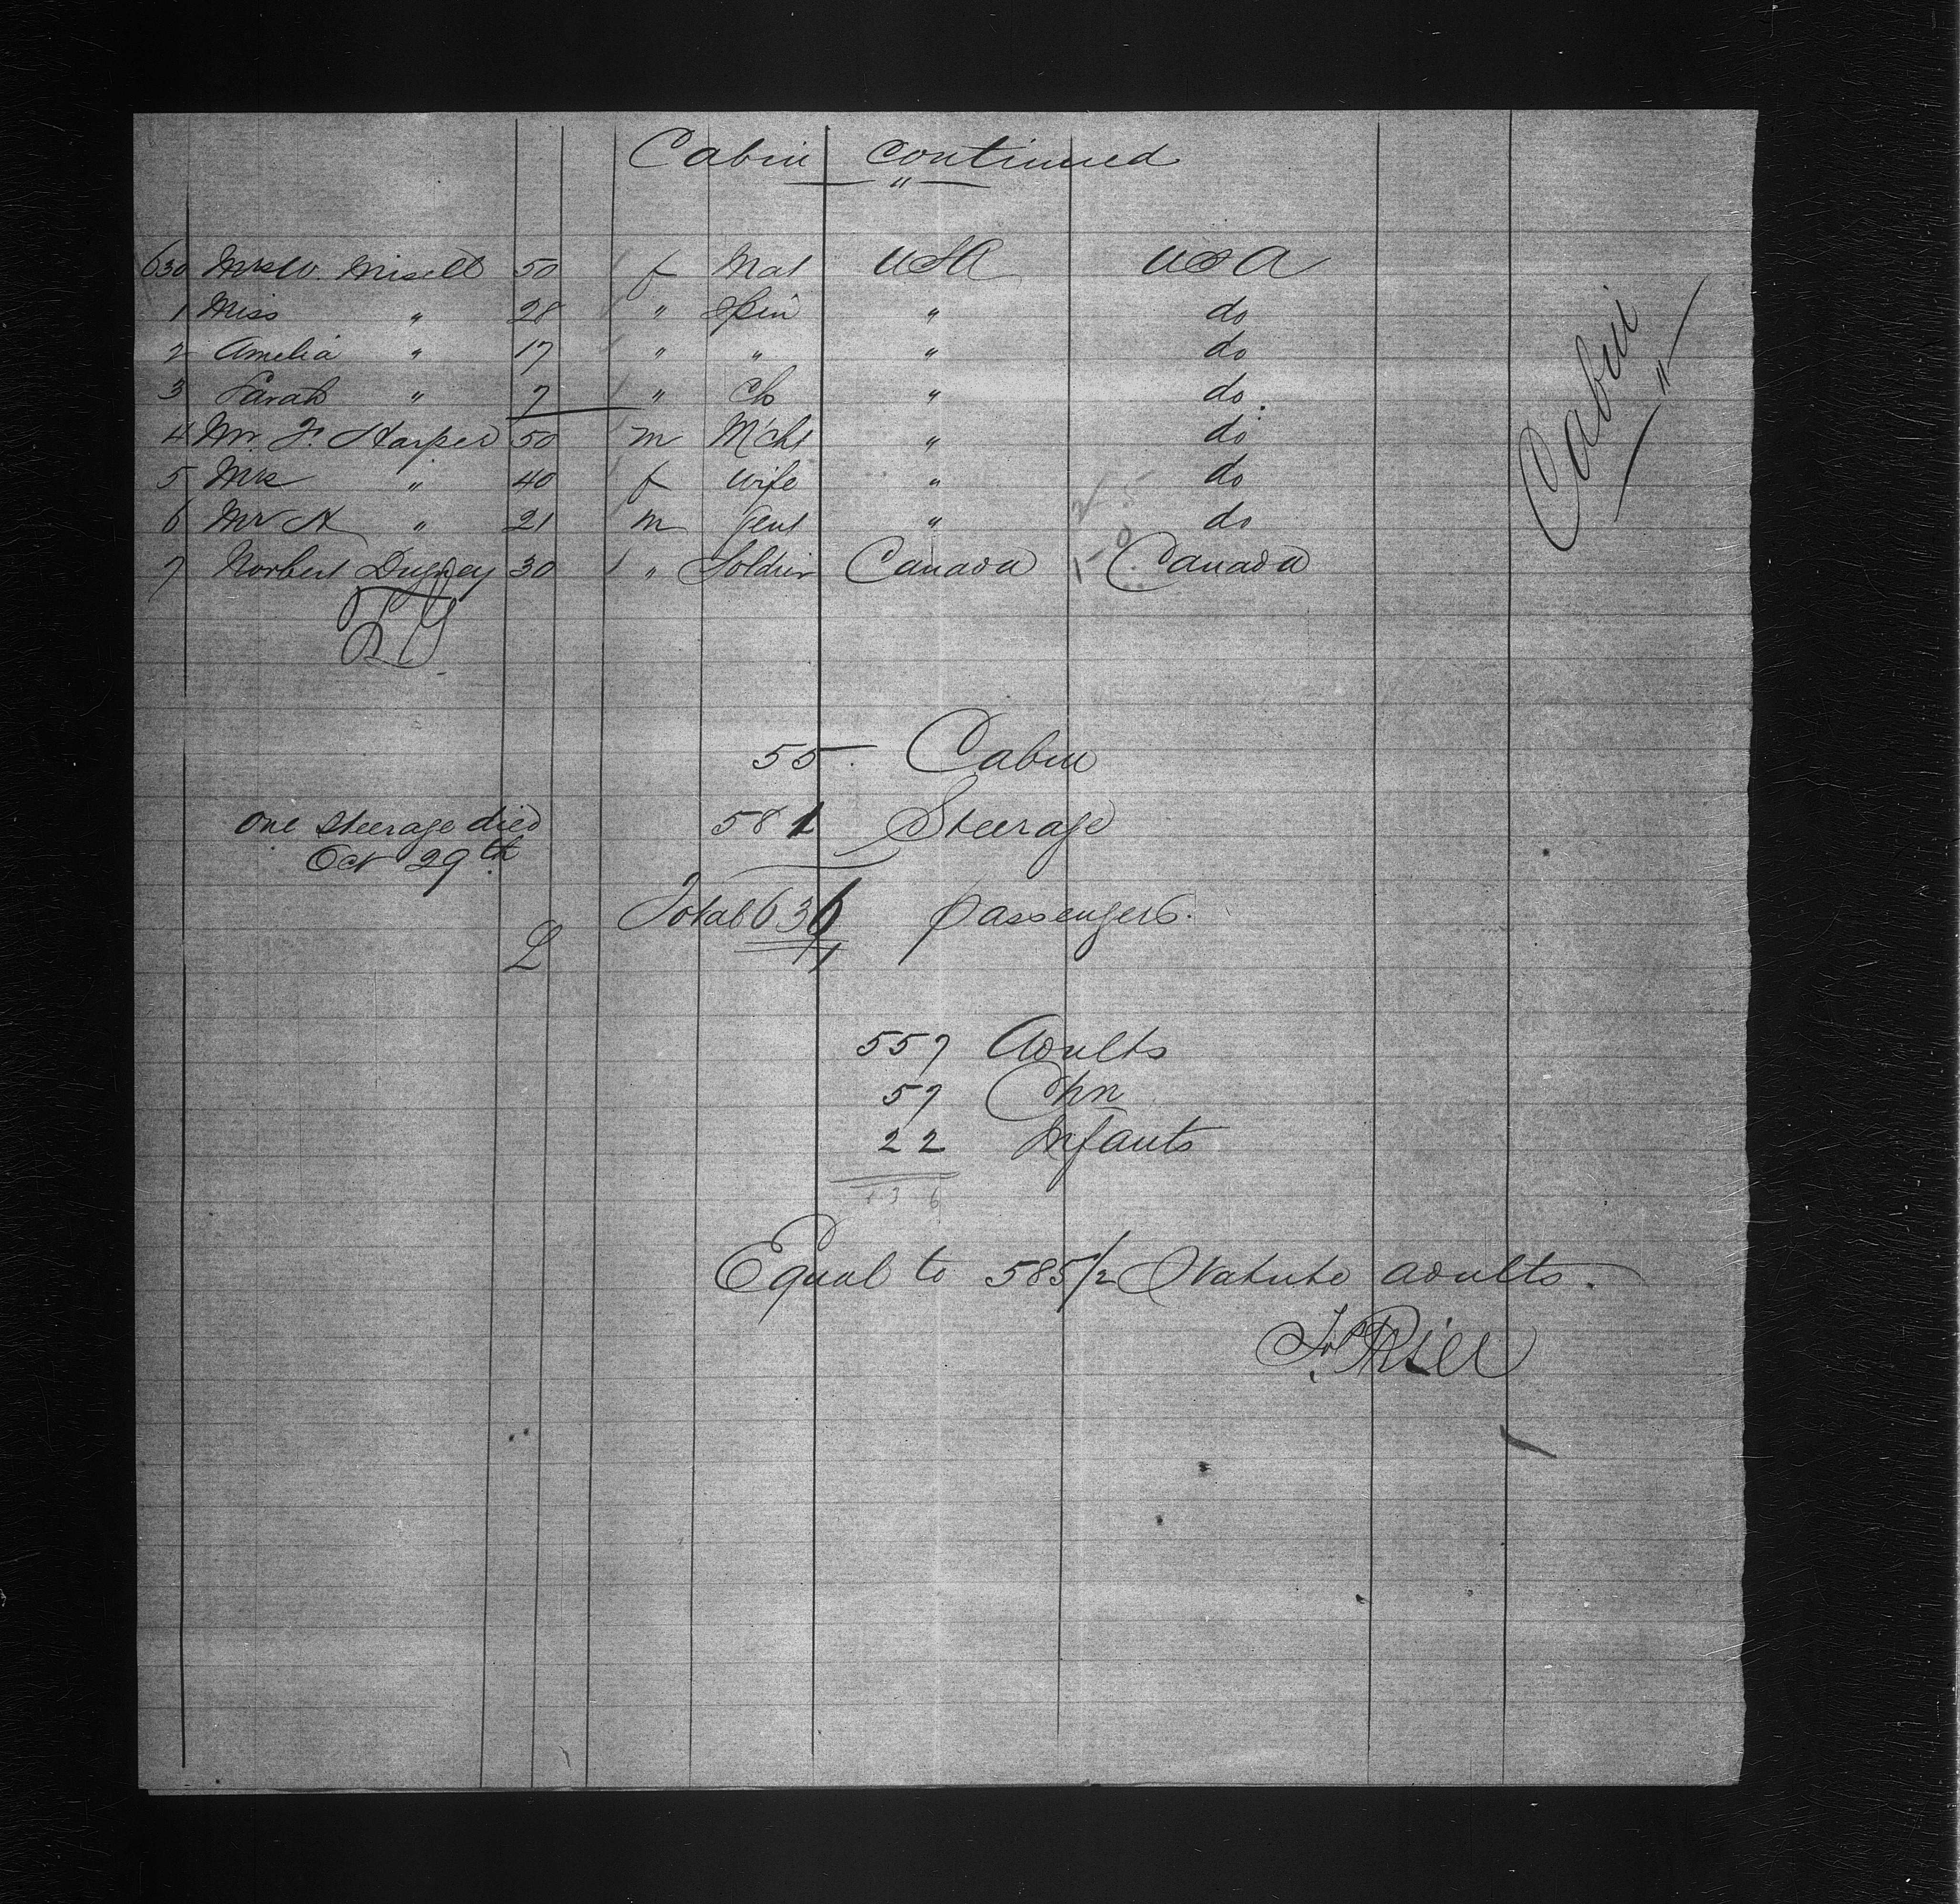 Cabin continued
"
630 Mrs W. Misell 50 1 f Mat USA USA
1 Miss " 28 1 " Spin " do
2 Amelia " 17 1 " " " do
3 Sarah " 7 1 " Ch " do
4 Mr F. Harper 50 1 m Mcht " do
5 Mrs " 40 1 f Wife " do
6 Mr H " 21 1 m Gent " do
7 Norbert 30 1 " Soldier Canada Canada
Cabin
"
55 Cabin
One Steerage died 581 Steerage
Oct 29th
Total 636 passengers.
557 Adults
57 Chn
22 Infants
636
Equal to 585 1/2 Statute adults.